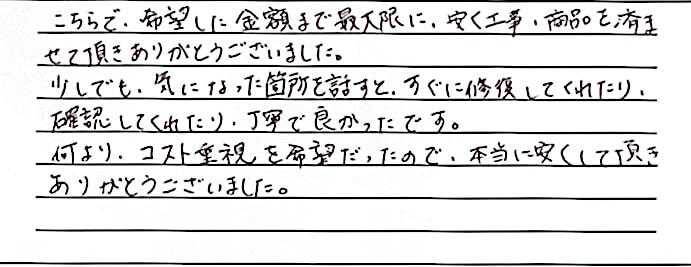 こちらで、希望した金額まで最大限に、安く工事・商品を済ま
せて頂きありがとうございました。
少しでも、気になった箇所を話すと、すぐに修復してくれたり、
確認してくれたり、丁寧で良かったです。
何より、コスト重視を希望だったので、本当に安くして頂き
ありがとうございました。